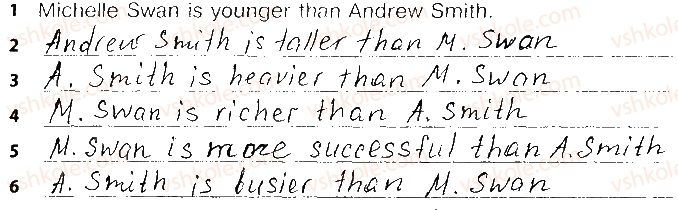 1 Michelle Swan is younger than Andrew Smith.
2 Andrew Smith is taller than M. Swan
3 A. Smith is heavier than M. Swan
4 M. Swan is richer than A. Smith
5 M. Swan is more successful than A. Smith
6 A. Smith is busier than M. Swan